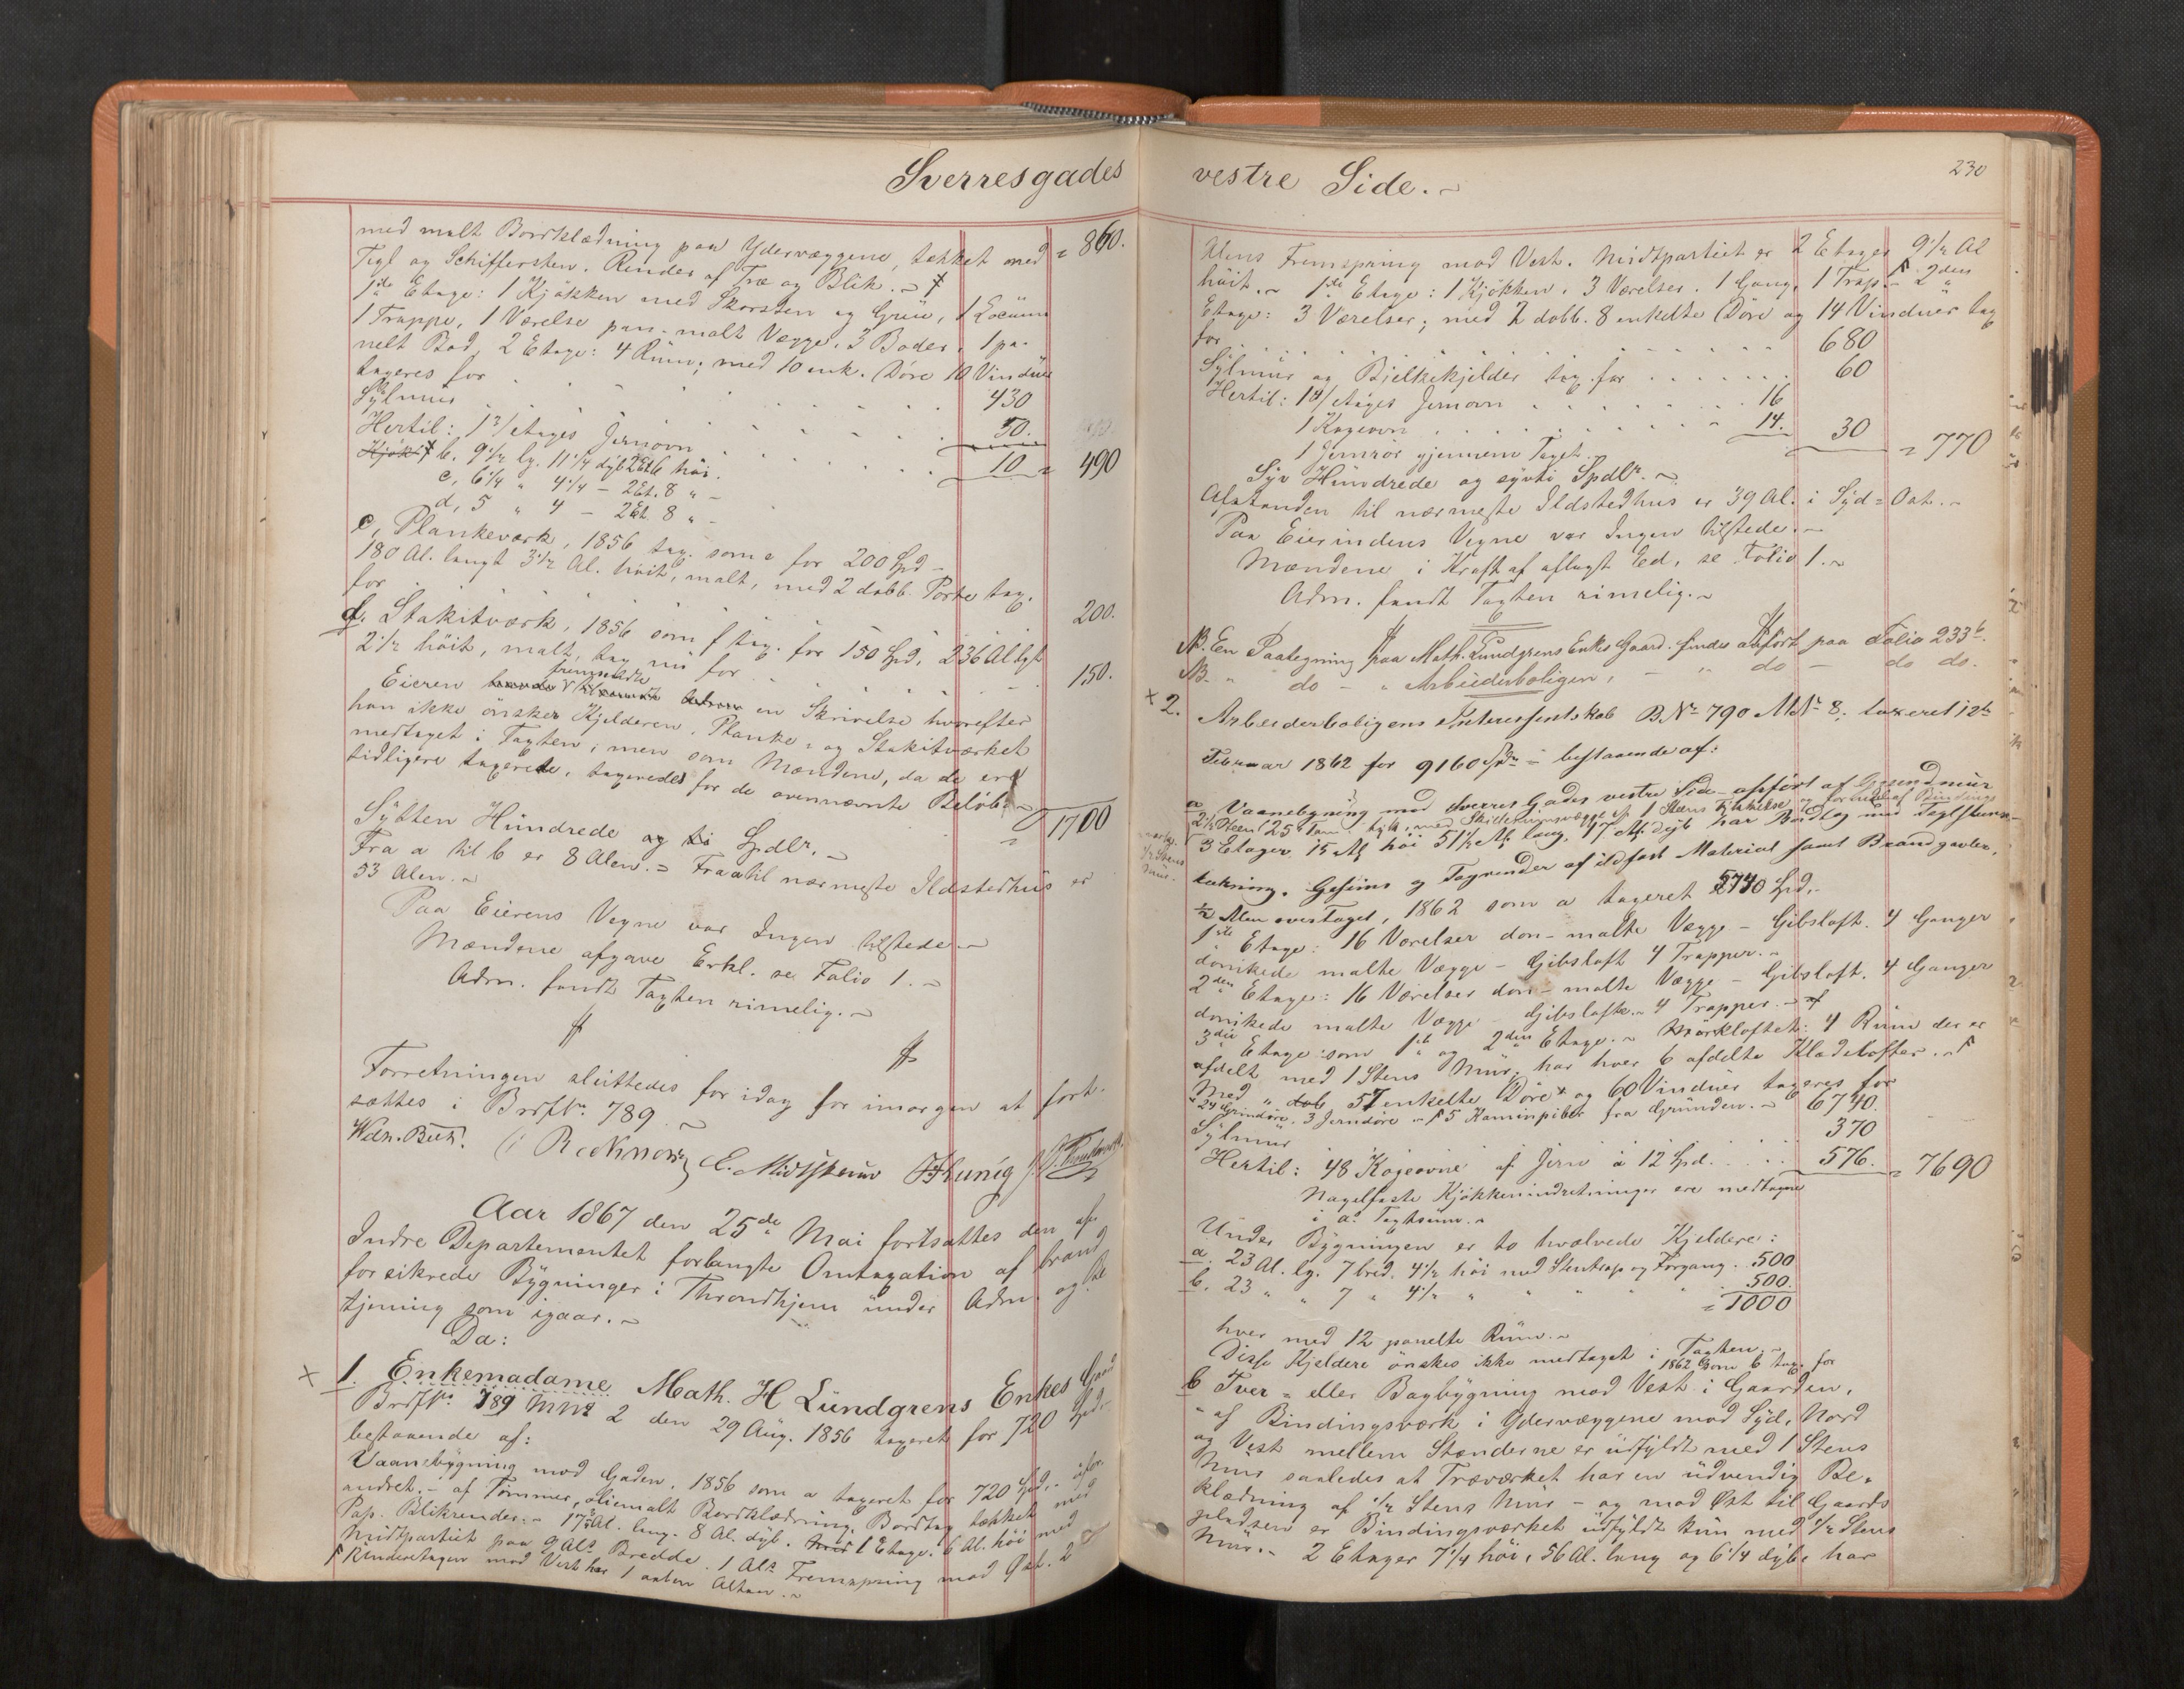 Sverresgades
med malt Bordklædning paa Ydervæggene, tækket med = 860.
Tegl og Schiffersten. Render af Træ og Blik.
1ste Etage: 1 Kjøkken med Skorsten og Grue, 1 Locum
1 Trappe, 1 Værelse pan. malt Vægge. 3 Boder, 1 pa-
nelt Bod, 2 Etage: 4 Rum; med 10 enk. Døre 10 Vinduer
taxeres for 430
Sylmur 50.
Hertil: 1 3/etages Jernovn 10 = 490
b. 9 1/2 lg. 11 1/4 dyb 2 Et. 6 høi.
c, 6 1/4 " 4 1/4 - 2 Et. 8 " -
d, 5 " 4 - 2 Et. 8 " -
e, Plankeværk, 1856 tax. som e for 200 Spd -
180 Al. langt 3 1/2 Al. høit, malt, med 2 dobb. Porte tax.
for 200.
f. Stakitværk, 1856 som f tax. for 150 Spd, 236 Al lgt
2 1/2 høit, malt, tax nu for 150.
Eieren fremsendte en Skrivelse hvorefter
han ikke ønsker Kjelderen, Planke- og Stakitværket
medtaget i Taxten; men som Mændene, da de ere
tidligere taxerede, taxeredes for de ovennævnte Beløb.
= 1700
Sytten Hundrede Spdlr.
Fra a til b er 8 Alen. = Fra a til nærmeste Ildstedhus er
33 Alen.
Paa Eierens Vegne var Ingen tilstede.
Mændene afgave Erkl. se Folio 1.
Adm. fandt Taxten rimelig.
Forretningen sluttedes for idag for imorgen at fort-
sættes i Brdf No. 789.
Aar 1867 den 25de Mai fortsattes den af
Indre Departementet forlangte Omtaxation af brand
forsikrede Bygninger i Throndhjem under Adm. og Be
tjening som igaar.
Da:
1. Enkemadame Math. H Lundgrens Enkes Gaard
Brdf No. 789 MNo 2 den 29 Aug. 1856 taxeret for 720 Spd.
bestaaende af:
Vaanebygning mod Gaden. 1856 som a taxeret for 720 Spd. - ufor-
andret. - af Tømmer, oliemalt Bordklædning, Bordtag tækket med
Pap. Blikrender. - 17 Al. lang. 8 Al. dyb. 1 Etage. 6 Al. høi med
Midtpartiet paa 9 Als Bredde. 1 Als Fremspring mod Øst. 2
Underetagen mod Vest har 1 aaben Altan.
vestre Side.
230
Alens Fremspring mod Vest. Midtpartiet er 2 Etager 9 1/2 Al
høit. 1ste Etage: 1 Kjøkken. 3 Værelser. 1 Gang, 1 Trap. - 2den
Etage: 3 Værelser; med 2 dobb. 8 enkelte Døre og 14 Vinduer tax
for 680
Sylmur og Bjelkekjelder tax. for 60
Hertil: 1 4/etages Jernovn 16
1 Kogeovn 14. 30
1 Jernrør gjennem Taget. = 770
Syv Hundrede og syvti Spdlr.
Afstanden til nærmeste Ildstedhus er 39 Al. i Syd-Ost.
Paa Eierindens Vegne var Ingen tilstede.
Mændene i Kraft af aflagt Ed, se Folio 1.
Adm. fandt Taxten rimelig.
NB. En Paategning paa Math. Lundgrens Enkes Gaard. findes anført paa Folio 233b.
NB. " do - " Arbeiderboligen, - " do - do do.
2. Arbeiderboligens Interessentskab B.No 790 MNo 8; taxeret 12te
Februar 1862 for 9160 Spdr - bestaaende af:
a Vaanebygning mod Sverres Gades vestre Side - opført af Grundmur
3 Etager 15 Al høi 51 1/2 Al lang, 17 Al. dyb har Bordtag med Taglsteens-
tækning. Gesims og Tagrender af ildfast Material samt Brandgavler,
1/2 Alen over Taget, 1862 som a taxeret 5740 Spd.
1ste Etage: 16 Værelser don- malte Vægge - Gibsloft. 4 Ganger
donikede malte Vægge - Gibsloft 4 Trapper.
2den Etage: 16 Værelser don- malte Vægge - Gibsloft. 4 Ganger
donikede malte Vægge - Gibslofte. 4 Trapper.
3die Etage som 1ste og 2den Etage. Mørkloftet: 4 Rum der er
afdelt med 1 Stens Mur; har hver 6 afdelte Klædelofter.
Med 57 enkelte Døre og 60 Vinduer taxeres for
24 Grindøre, 3 Jerndøre - 5 Kaminpiber fra Grunden. 6740.
Sylmur 370
Hertil: 48 Kogeovne af Jern à 12 Spd. 576. = 7690
Nagelfaste Kjøkkenindretninger ere medtagne
i a's Taxtsum.
Under Bygningen er to hvælvede Kjeldere:
a. 23 Al. lg. 7 bred. 4 1/2 høi med Stentrap og Forgang. 500
b. 23 " " 7 " 4 1/2 " " " " " 500.
= 1000
hver med 12 panelte Rum.
Disse Kjeldere ønskes ikke medtaget i Taxten.
1862 som b tax. for
b Tver- eller Bagbygning mod Vest i Gaarden,
- af Bindingsværk i Ydervæggene mod Syd, Nord
og Vest mellem Stænderne er udfyldt med 1 Stens
Mur saaledes at Træværket har en udvendig Be-
klædning af 1/2 Stens Mur - og mod Øst til Gaards
pladsen er Bindingsværket udfyldt kun med 1/2 Stens
Mur. - 2 Etager 7 1/4 høi, 56 Al. lang og 6 1/4 dyb, har